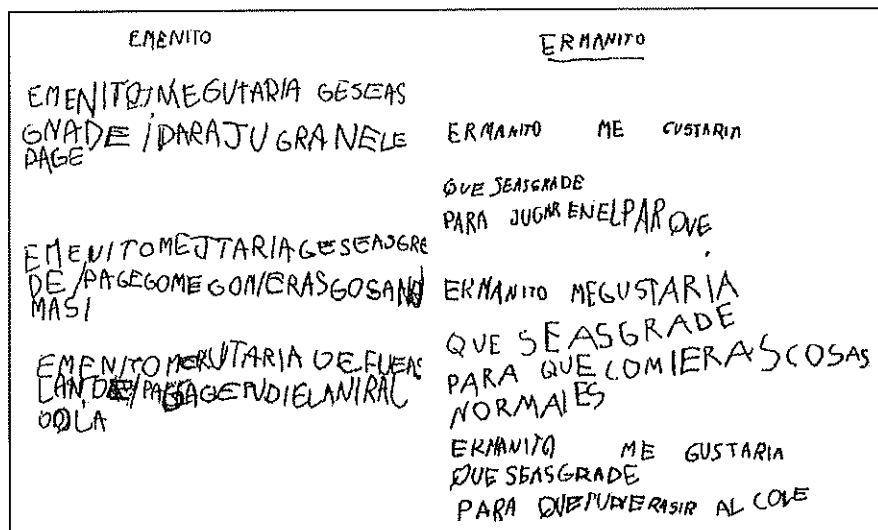 EMENITO
EMENITO,MEGUTARIA GESEAS
GNADE /DARAJUGRANELE
PAGE
EMENITOMEJTARIAGESEASGRE
DE /PAGEGOMEGONIERASGOSAN
MASI
EMENITO
LANDE/
ODLA
ERMANITO
ERMANITO ME GUSTARIA
QUE SEASGRADE
PARA JUGAR ENELPARQUE
ERMANITO MEGUSTARIA
QUE SEASGRADE
PARA QUE COMIERAS COSAS
NORMALES
ERMANITO ME GUSTARIA
QUE SEASGRADE
PARA QUEPUDIERASIR AL COLE